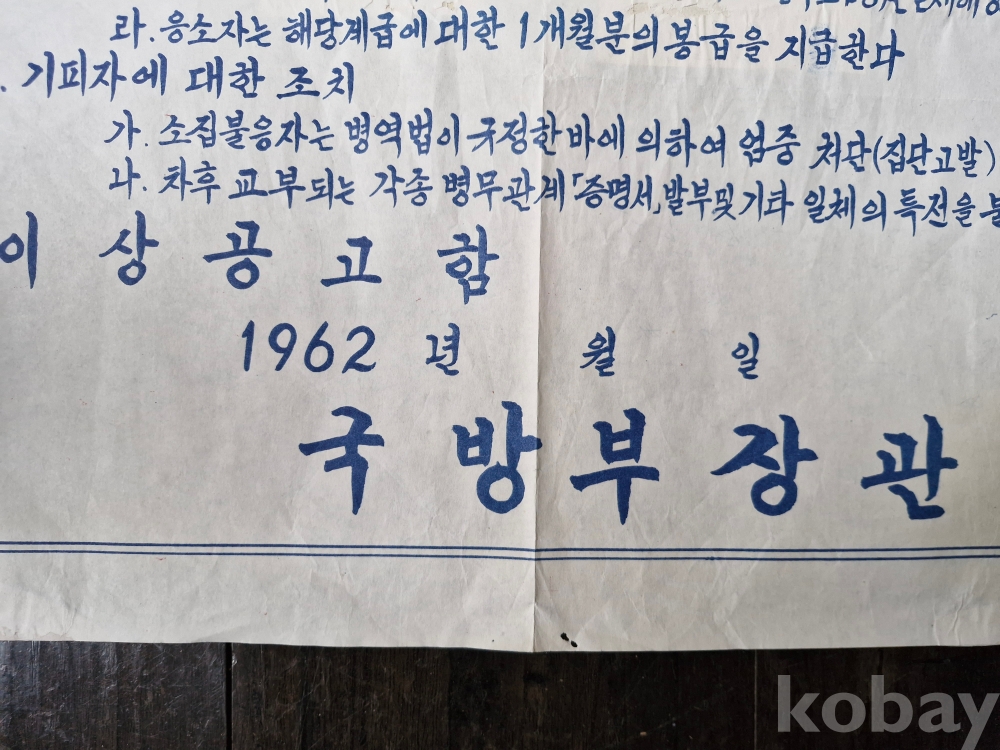 라. 응소자는 해당계급에 대한 1개월분의 봉급을 지급한다
. 기피자에 대한 조치
가. 소집불응자는 병역법이 규정한 바에 의하여 엄중 처단(집단고발)
나. 차후 교부되는 각종 병무관계「증명서」발부및 기타 일체의 특전을
이상공고함
1962 년 월 일
국방부장관
kobay